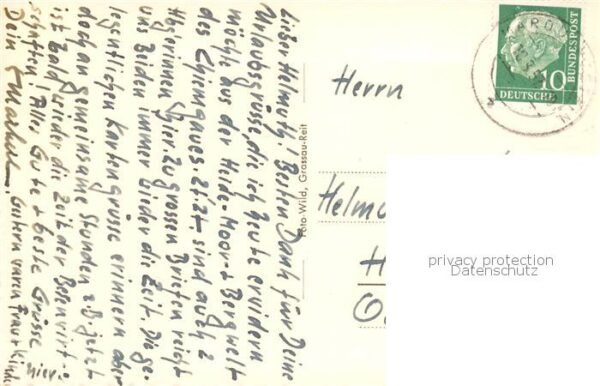 Lieber Helmuth! Besten Dank für Deine
Urlaubsgrüsse, die ich heute erwidern
möchte aus der Heide-Moor-+ Bergwelt
des Chiemgaues. Zitzt, sind auch 2
Absgerinnen hier. Zu grossen Briefen reicht
uns Beiden immer wieder die Zeit. Die ge-
legentlichen Kartengrüsse erinnern aber
doch an gemeinsame Stunden z.B. jetzt
ist bald wieder die Zeit der Besenwirt-
schaften! Alles Gute + beste Grüsse
Dein
Gestern waren Frau + Kinder hier.
Foto-Wild, Grassau-Reit
Herrn
Helmu
H
O
10
DEUTSCHE
BUNDESPOST
privacy protection
Datenschutz